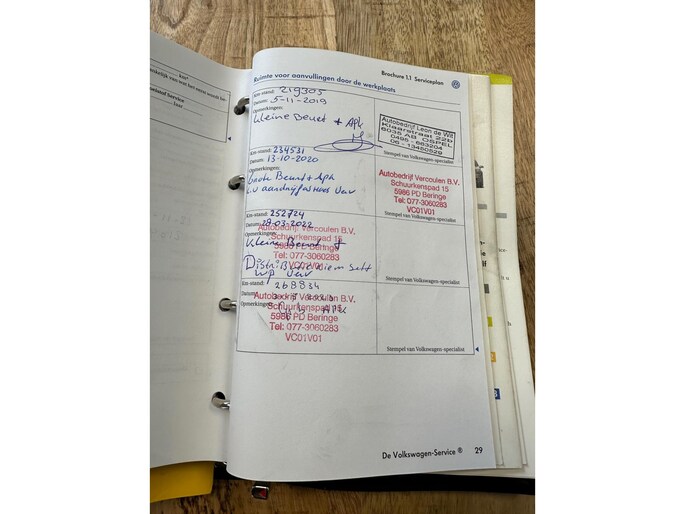 km*
Brochure 1.1 Serviceplan
Ruimte voor aanvullingen door de werkplaats
Km-stand: 219305
Datum: 5-11-2019
Opmerkingen:
kleine Beurt + Apk
Autobedrijf Leon de Wit
Klaarstraat 22B
6035 AB OSPEL
0495-663204
06-13460829
Stempel van Volkswagen-specialist
Km-stand: 234531
Datum: 13-10-2020
Opmerkingen:
Grote Beurt + Apk
aandrijfas
Autobedrijf Vercoulen B.V.
Schuurkenspad 15
5986 PD Beringe
Tel: 077-3060283
VC01V01
Stempel van Volkswagen-specialist
Km-stand: 252724
Datum: 28-03-2022
Opmerkingen:
Kleine Beurt +
Autobedrijf Vercoulen B.V.
Schuurkenspad 15
5986 PD Beringe
Tel: 077-3060283
VC01V01
Stempel van Volkswagen-specialist
Km-stand: 268834
Datum:
Opmerkingen:
APK
Autobedrijf Vercoulen B.V.
Schuurkenspad 15
5986 PD Beringe
Tel: 077-3060283
VC01V01
Stempel van Volkswagen-specialist
De Volkswagen-Service ® 29